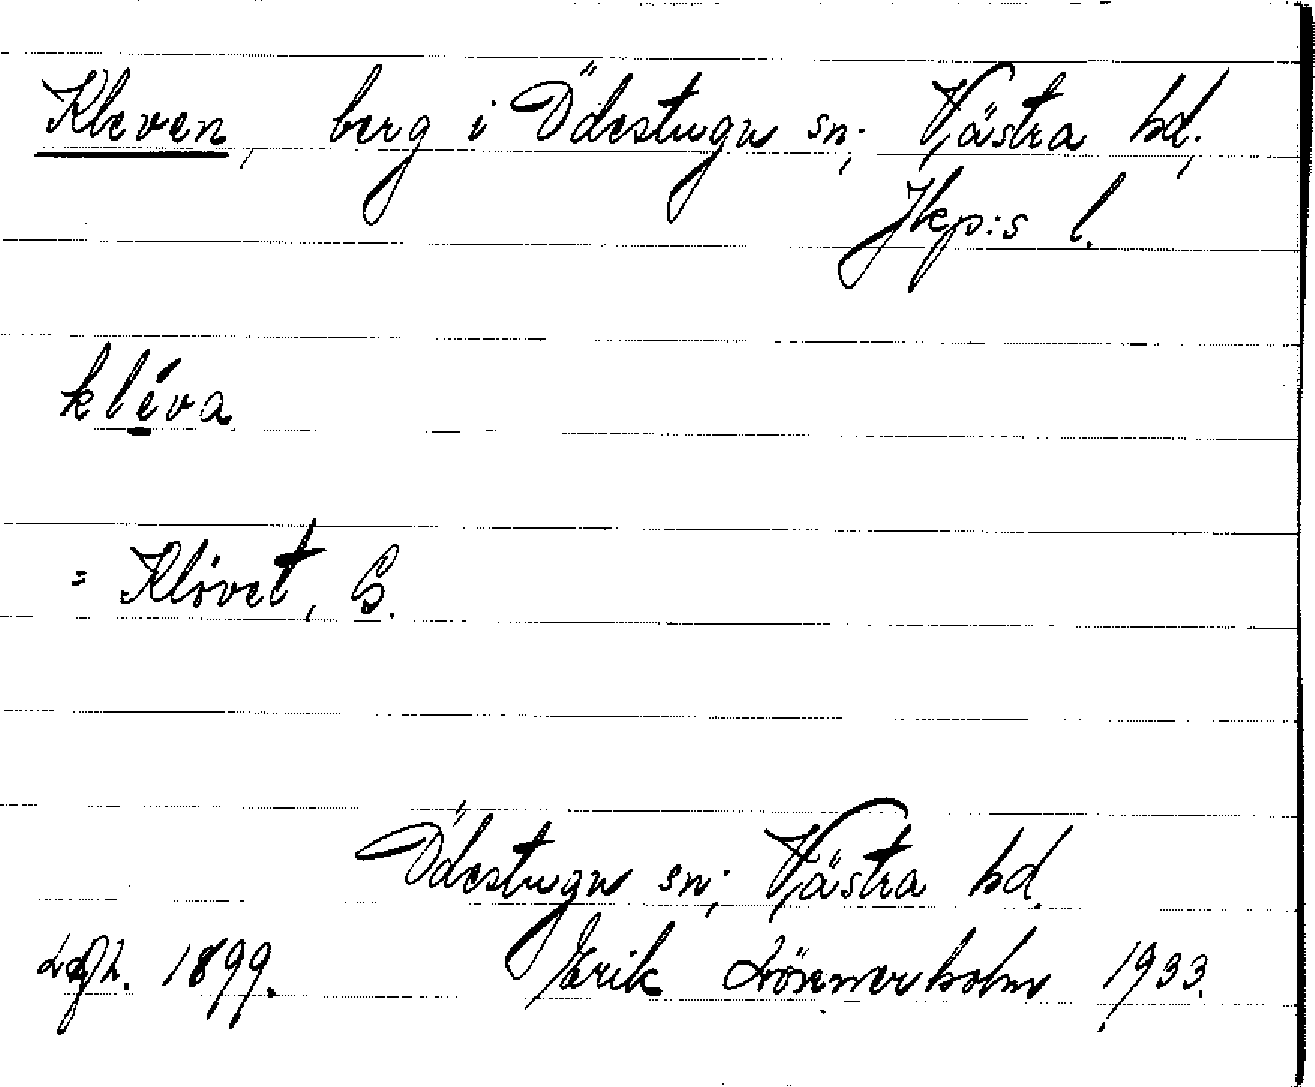 Kleven, berg i Ödestugu sn; Västra hd;
Jkp:s l.
kléva
= Klövet, G.
Ödestugu sn; Västra hd.
1899. Erik 1933.